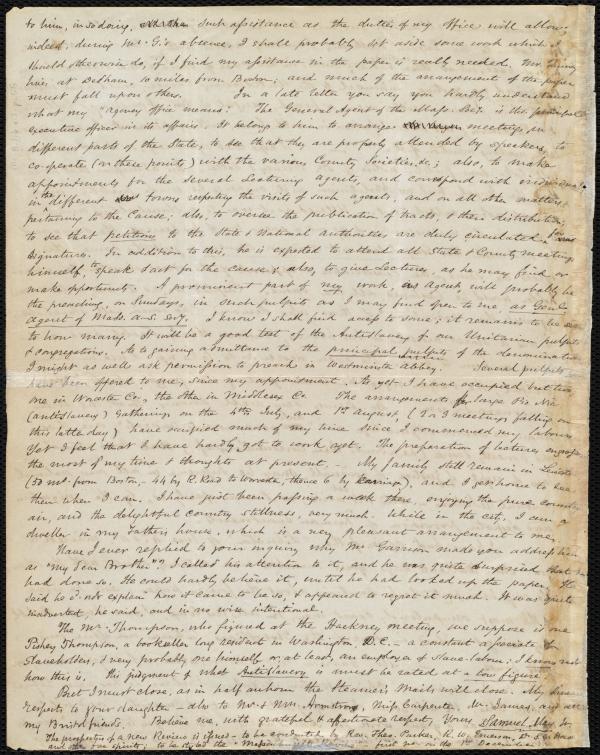 to him, in so doing, such assistance as the duties of my office will allow;
indeed, during Mr. G's absence, I shall probably set aside some work which I
should otherwise do, if I find my assistance in the paper is really needed. Mr. Quincy
lives at Dedham, 10 miles from Boston; and much of the arrangement of the paper
must fall upon others. In a late letter you say you hardly understand
what my "agency office means." The General Agent of the Mass. Soc. is the principal
executive officer in its affairs. It belongs to him to arrange meetings in
different parts of the State, to see that they are properly attended by speakers, to
co-operate (on these points) with the various County Societies, &c; also, to make
appointments for the several Lecturing agents, and correspond with individuals
in the different towns respecting the visits of such agents, and on all other matters
pertaining to the Cause; also, to oversee the publication of tracts, & their distribution;
to see that petitions to the State & National authorities are duly circulated for
signature. In addition to this, he is expected to attend all State & County meetings
himself, to speak &c for the cause; also, to give Lectures, as he may find or
make opportunity. A prominent part of my work, as Agent, will probably be
the preaching, on Sundays, in such pulpits as I may find open to me, as Genl.
Agent of Mass. A-S. Socy. I know I shall find access to some; it remains to be seen
to how many. It will be a good test of the Antislavery of our Unitarian pulpits
& congregations. As to gaining admittance to the principal pulpits of the denomination
I might as well ask permission to preach in Westminster Abbey. Several pulpits
have been offered to me, since my appointment. As yet I have occupied but two
one in Worcester Co., the other in Middlesex Co. The arrangements for large Pic Nic
(antislavery) gatherings on the 4th July, and 1st August, (2 or 3 meetings falling on
this latter day) have occupied much of my time since I commenced my labours
Yet I feel that I have hardly got to work yet. The preparation of lectures engrosses
the most of my time & thoughts at present. - My family still remain in Leicester
(50 ms. from Boston, - 44 by R. Road to Worcester, thence 6 by carriage), and I get home to see
them when I can. I have just been passing a week there, enjoying the pure country
air, and the delightful country stillness, very much. While in the city, I am a
dweller in my Father's house, which is a very pleasant arrangement to me.
Have I ever replied to your inquiry why Mr Garrison made you address him
as "my dear Brother"? I called his attention to it, and he was quite surprised that he
had done so. He could hardly believe it, until he had looked up the paper. He
said he cd. not explain how it came to be so, & appeared to regret it much. It was quite
inadvertent, he said, and in no wise intentional.
The Mr. Thompson, who figured at the Hackney meeting, we suppose is one
Pishey Thompson, a bookseller long resident in Washington, D.C. - a constant associate of
Slaveholders, & very probably one himself or, at least, an employer of Slave-labour; I know not
how this is. His judgment of what Antislavery is must be rated at a low figure.
But I must close, as in half an hour the Steamer's Mails will close. My sincere
respects to your daughter - also to Mr & Mrs Armstrong, Miss Carpenter, Mr. James, and all
my Bristol friends. Believe me, with grateful & affectionate respect, Yours, Samuel May Jr.
The prospectus of a new Review is issued - to be conducted by Rev. Theo. Parker, R. W. Emerson, Dr S. G. Howe
and other free spirits; to be styled the "Mass first no. on 1st December